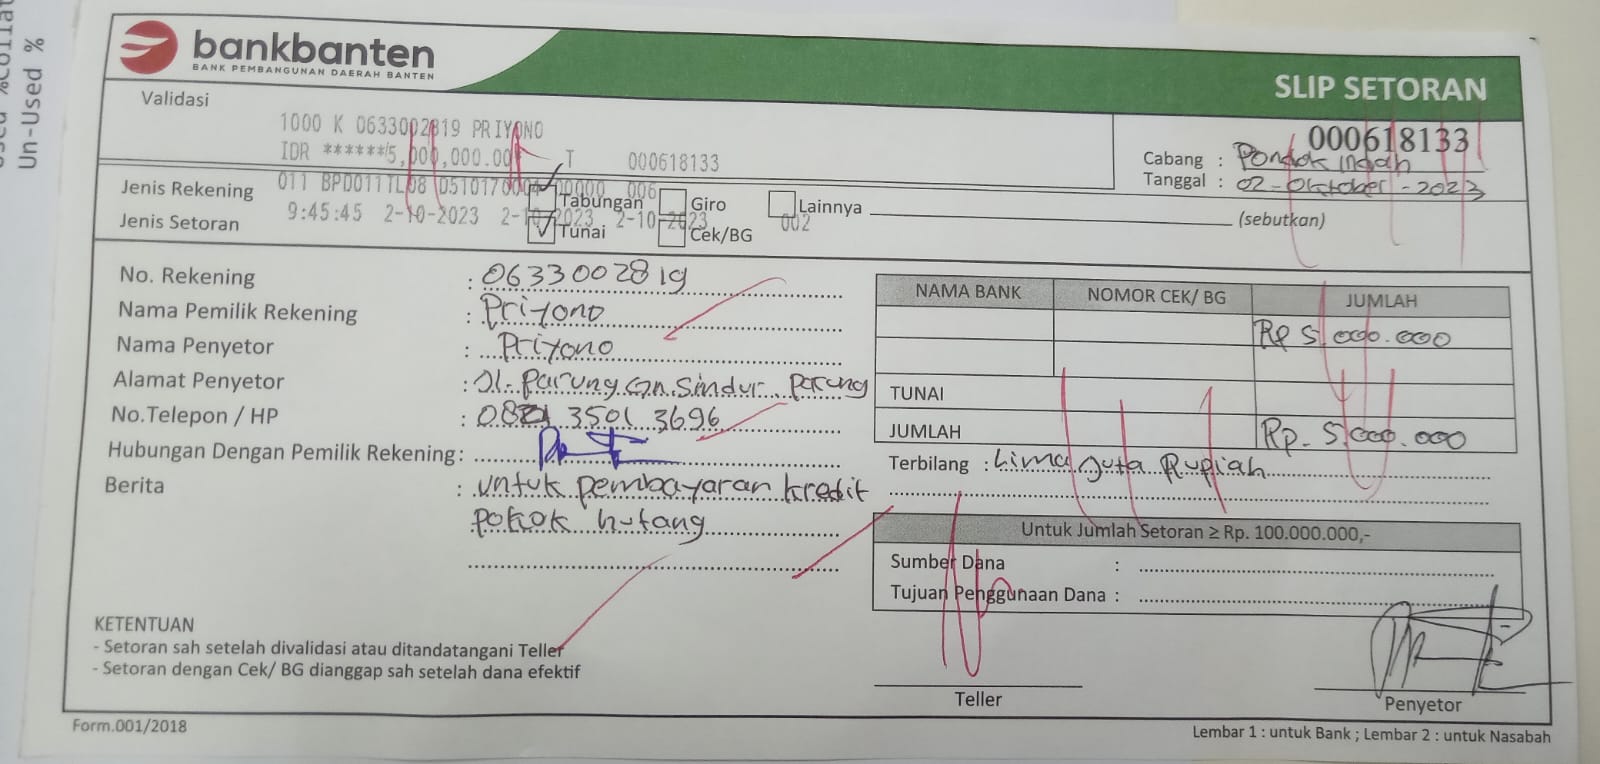 Used %Collat
Un-Used %
bankbanten
BANK PEMBANGUNAN DAERAH BANTEN
SLIP SETORAN
Validasi
1000 K 0633002819 PRIYONO
IDR ******5,000,000.00 T 000618133
000618133
Cabang : Pondok Indah
Tanggal : 02-Oktober-2023
011 BPD011TL08 0510170004 00000 006
Jenis Rekening Tabungan Giro Lainnya (sebutkan)
9:45:45 2-10-2023 2-10-2023 2-10-2023 002
Jenis Setoran Tunai Cek/BG
No. Rekening : 0633002819
Nama Pemilik Rekening : Priyono
Nama Penyetor : Priyono
Alamat Penyetor : Jl. Parung Gn. Sindur, Parung
No.Telepon / HP : 0821 3501 3696
Hubungan Dengan Pemilik Rekening :
Berita : untuk pembayaran kredit
pokok hutang
NAMA BANK NOMOR CEK/ BG JUMLAH
Rp 5.000.000
TUNAI
JUMLAH Rp. 5.000.000
Terbilang : Lima Juta Rupiah
Untuk Jumlah Setoran ≥ Rp. 100.000.000,-
Sumber Dana :
Tujuan Penggunaan Dana :
KETENTUAN
- Setoran sah setelah divalidasi atau ditandatangani Teller
- Setoran dengan Cek/ BG dianggap sah setelah dana efektif
Teller
Penyetor
Form.001/2018
Lembar 1 : untuk Bank ; Lembar 2 : untuk Nasabah